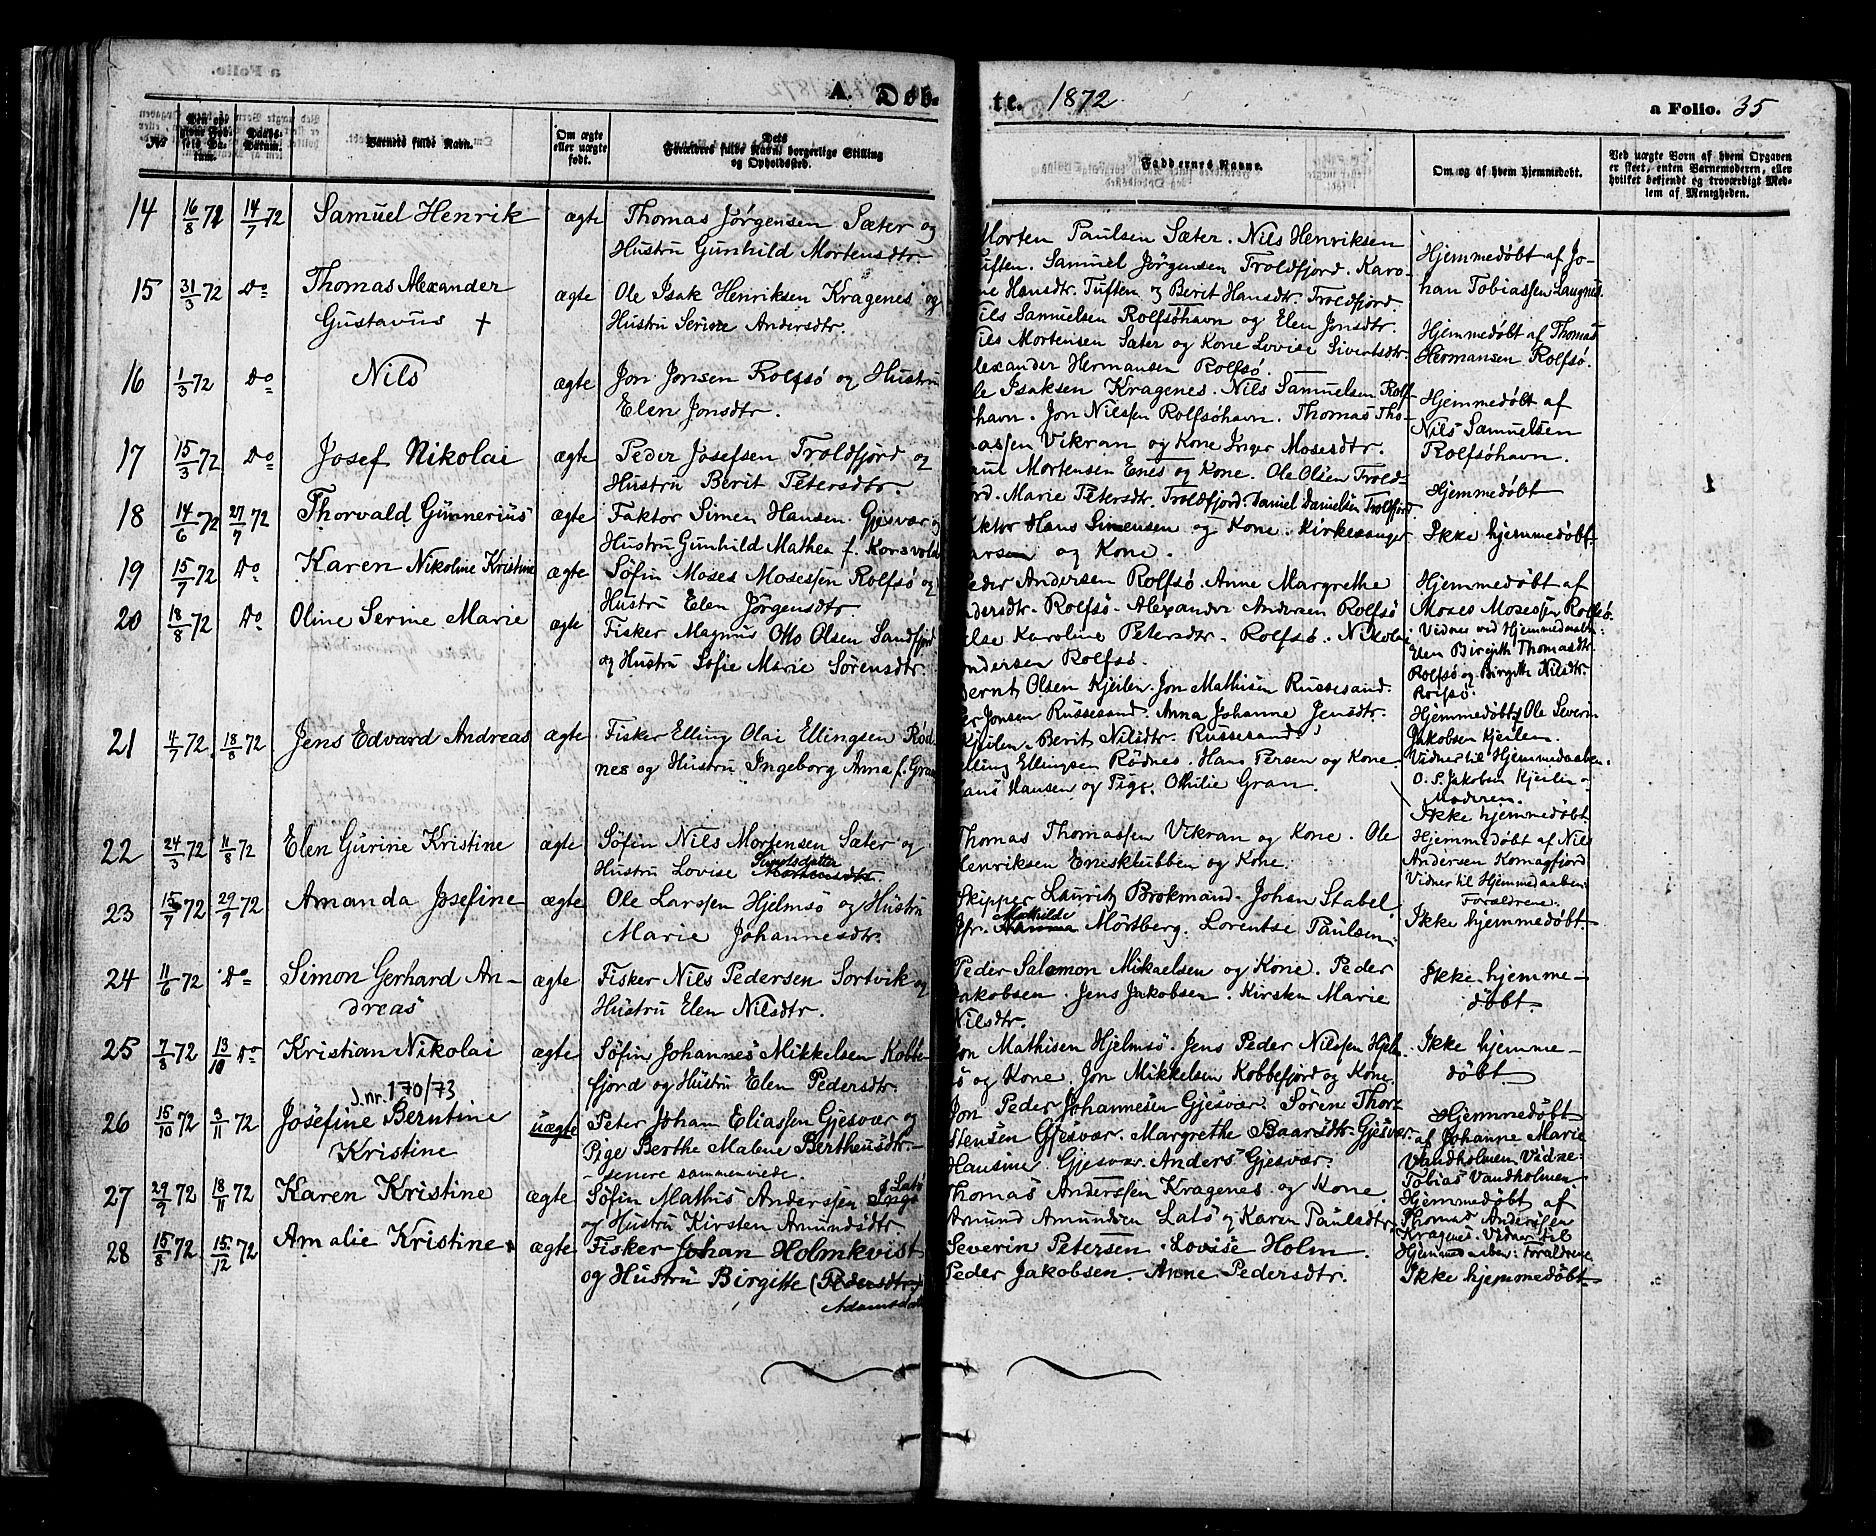 A. Døb-
te. 1872
a Folio. 35
No
Barnets fulde Navn.
Om ægte eller uægte født.
Dets Forældres fulde Navn, borgerlige Stilling og Opholdssted.
Faddernes Navne.
Om og af hvem hjemmedøbt.
Ved uægte Børn af hvem Opgaven er skeet, enten Barnemoderen, eller hvilket bekjendt og troværdigt Medlem af Menigheden.
14 16/8 72 14/7 72 Samuel Henrik ægte Thomas Jørgensen Sæter og
Hustru Gunhild Mortensdtr.
Morten Paulsen Sæter. Nils Henriksen
Tuften. Samuel Jørgensen Troldfjord. Karo-
ne Hansdtr. Tuften og Berit Hansdtr. Troldfjord.
Hjemmedøbt af Jo-
han Tobiassen Laugnes.
15 31/3 72 Do Thomas Alexander
Gustavus +
ægte Ole Isak Henriksen Kragenes og
Hustru Serine Andersdtr.
Nils Samuelsen Rolfsøhavn og Elen Jonsdtr.
Nils Mortensen Sæter og Kone Lovise Sivertsdtr.
Alexander Hermansen Rolfsø.
Hjemmedøbt af Thomas
Hermansen Rolfsø.
16 1/3 72 Do Nils ægte Jon Jonsen Rolfsø og Hustru
Elen Jonsdtr.
Ole Isaksen Kragenes. Nils Samuelsen Rolf-
søhavn. Jon Nilssen Rolfsøhavn. Thomas Tho-
massen Vikran og Kone Inger Mosesdtr.
Hjemmedøbt af
Nils Samuelsen
Rolfsøhavn.
17 15/3 72 Do Josef Nikolai ægte Peder Josefsen Troldfjord og
Hustru Berit Petersdtr.
Paul Mortensen Enes og Kone. Ole Olsen Trold-
fjord. Marie Petersdtr. Troldfjord. Daniel Danielsen Troldfjord.
Hjemmedøbt
18 14/6 72 27/7 72 Thorvald Gunnerius ægte Faktor Simen Hansen Gjesvær og
Hustru Gunhild Mathea f. Korsvold
Faktor Hans Simensen og Kone. Kirkesanger
Larsen og Kone.
Ikke hjemmedøbt.
19 15/7 72 Do Karen Nikoline Kristine ægte Søfin Moses Mosessen Rolfsø og
Hustru Elen Jørgensdtr.
Peder Andersen Rolfsø. Anne Margrethe
Andersdtr. Rolfsø. Alexander Andersen Rolfsø
Else Karoline Petersdtr. Rolfsø. Nikolai
Andersen Rolfsø.
Hjemmedøbt af
Moses Mosessen Rolfsø.
Vidner ved Hjemmedaaben:
Elen Birgith Thomasdtr.
Rolfsø og Birgitte Nilsdtr.
Rolfsø.
20 18/8 72 Do Oline Serine Marie ægte Fisker Magnus Otto Olsen Sandfjord
og Hustru Sofie Marie Sørensdtr.
Bernt Olsen Kjeilen. Jon Mathisen Russesand.
Per Jonsen Russesand. Anna Johanne Jensdtr.
Kjeilen. Berit Nilsdtr. Russesand.
Hjemmedøbt af Ole Severin
Jakobsen Kjeilen.
Vidner til Hjemmedaaben:
O. S. Jakobsen Kjeilen o
Moderen.
21 4/7 72 18/8 72 Jens Edvard Andreas ægte Fisker Elling Olai Ellingsen Rød-
nes og Hustru Ingeborg Anna f. Gran
Elling Ellingsen Rødnes. Hans Persen og Kone
Hans Hansen og Pige. Othilie Gran.
Ikke hjemmedøbt.
22 24/3 72 11/8 72 Elen Gurine Kristine ægte Søfin Nils Mortensen Sæter og
Hustru Lovise Sivertsdatter Mortensdtr.
Thomas Thomassen Vikran og Kone. Ole
Henriksen Enesklubben og Kone.
Hjemmedøbt af Nils
Andersen Komagfjord
Vidner til Hjemmedaaben:
Forældrene.
23 15/7 72 29/9 72 Amanda Josefine ægte Ole Larssen Hjelmsø og Hustru
Marie Johannesdtr.
Skipper Lauritz Brokmand. Johan Stabel.
Jfr. Mathilde Mørtberg. Lorentse Paulsen.
Ikke hjemmedøbt.
24 11/6 72 Do Simon Gerhard An-
dreas
ægte Fisker Nils Pedersen Sortvik og
Hustru Elen Nilsdtr.
Peder Salomon Mikaelsen og Kone. Peder
Jakobsen. Jens Jakobsen. Kirsten Marie
Nilsdtr.
Ikke hjemme-
døbt.
25 7/8 72 13/10 Do Kristian Nikolai ægte Søfin Johannes Mikkelsen Kobbe-
fjord og Hustru Elen Pedersdtr.
Jon Mathisen Hjelmsø. Jens Peder Nilssen Hjelm-
sø og Kone. Jon Mikkelsen Kobbefjord og Kone.
Ikke hjemme-
døbt.
J.nr. 170/73
26 15/10 72 3/11 72 Josefine Berntine
Kristine
uægte Peter Johan Eliassen Gjesvær og
Pige Berthe Malene Bertheusdtr.
senere sammenviede.
Jon Peder Johannesen Gjesvær. Søren Thor-
stensen Gjesvær. Margrethe Baarsdtr. Gjesvær.
Hansine Gjesvær. Anders Gjesvær.
Hjemmedøbt
af Johanne Marie
Vandholmen Vidne:
Tobias Vandholmen
27 29/9 72 18/11 72 Karen Kristine ægte Søfin Mathis Anderssen Latø
og Hustru Kirsten Amundsdtr.
Thomas Anderssen Kragenes og Kone
Amund Amundsen Latø og Karen Paulsdtr.
Hjemmedøbt af
Thomas Anderssen
Kragenes. Vidner til
Hjemmedaaben: Forældrene
28 15/8 72 15/12 72 Amalie Kristine ægte Fisker Johan Holmkvist
og Hustru Birgitte (Pedersdtr.)
Adamsdatter
Severin Petersen. Lovise Holm.
Peder Jakobsen. Anne Pedersdtr.
Ikke hjemmedøbt.